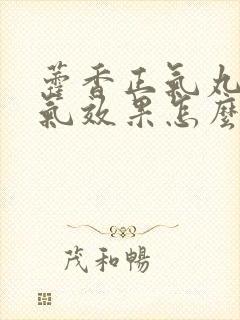 藿香正氣丸
氣效果怎麼
茂和暢